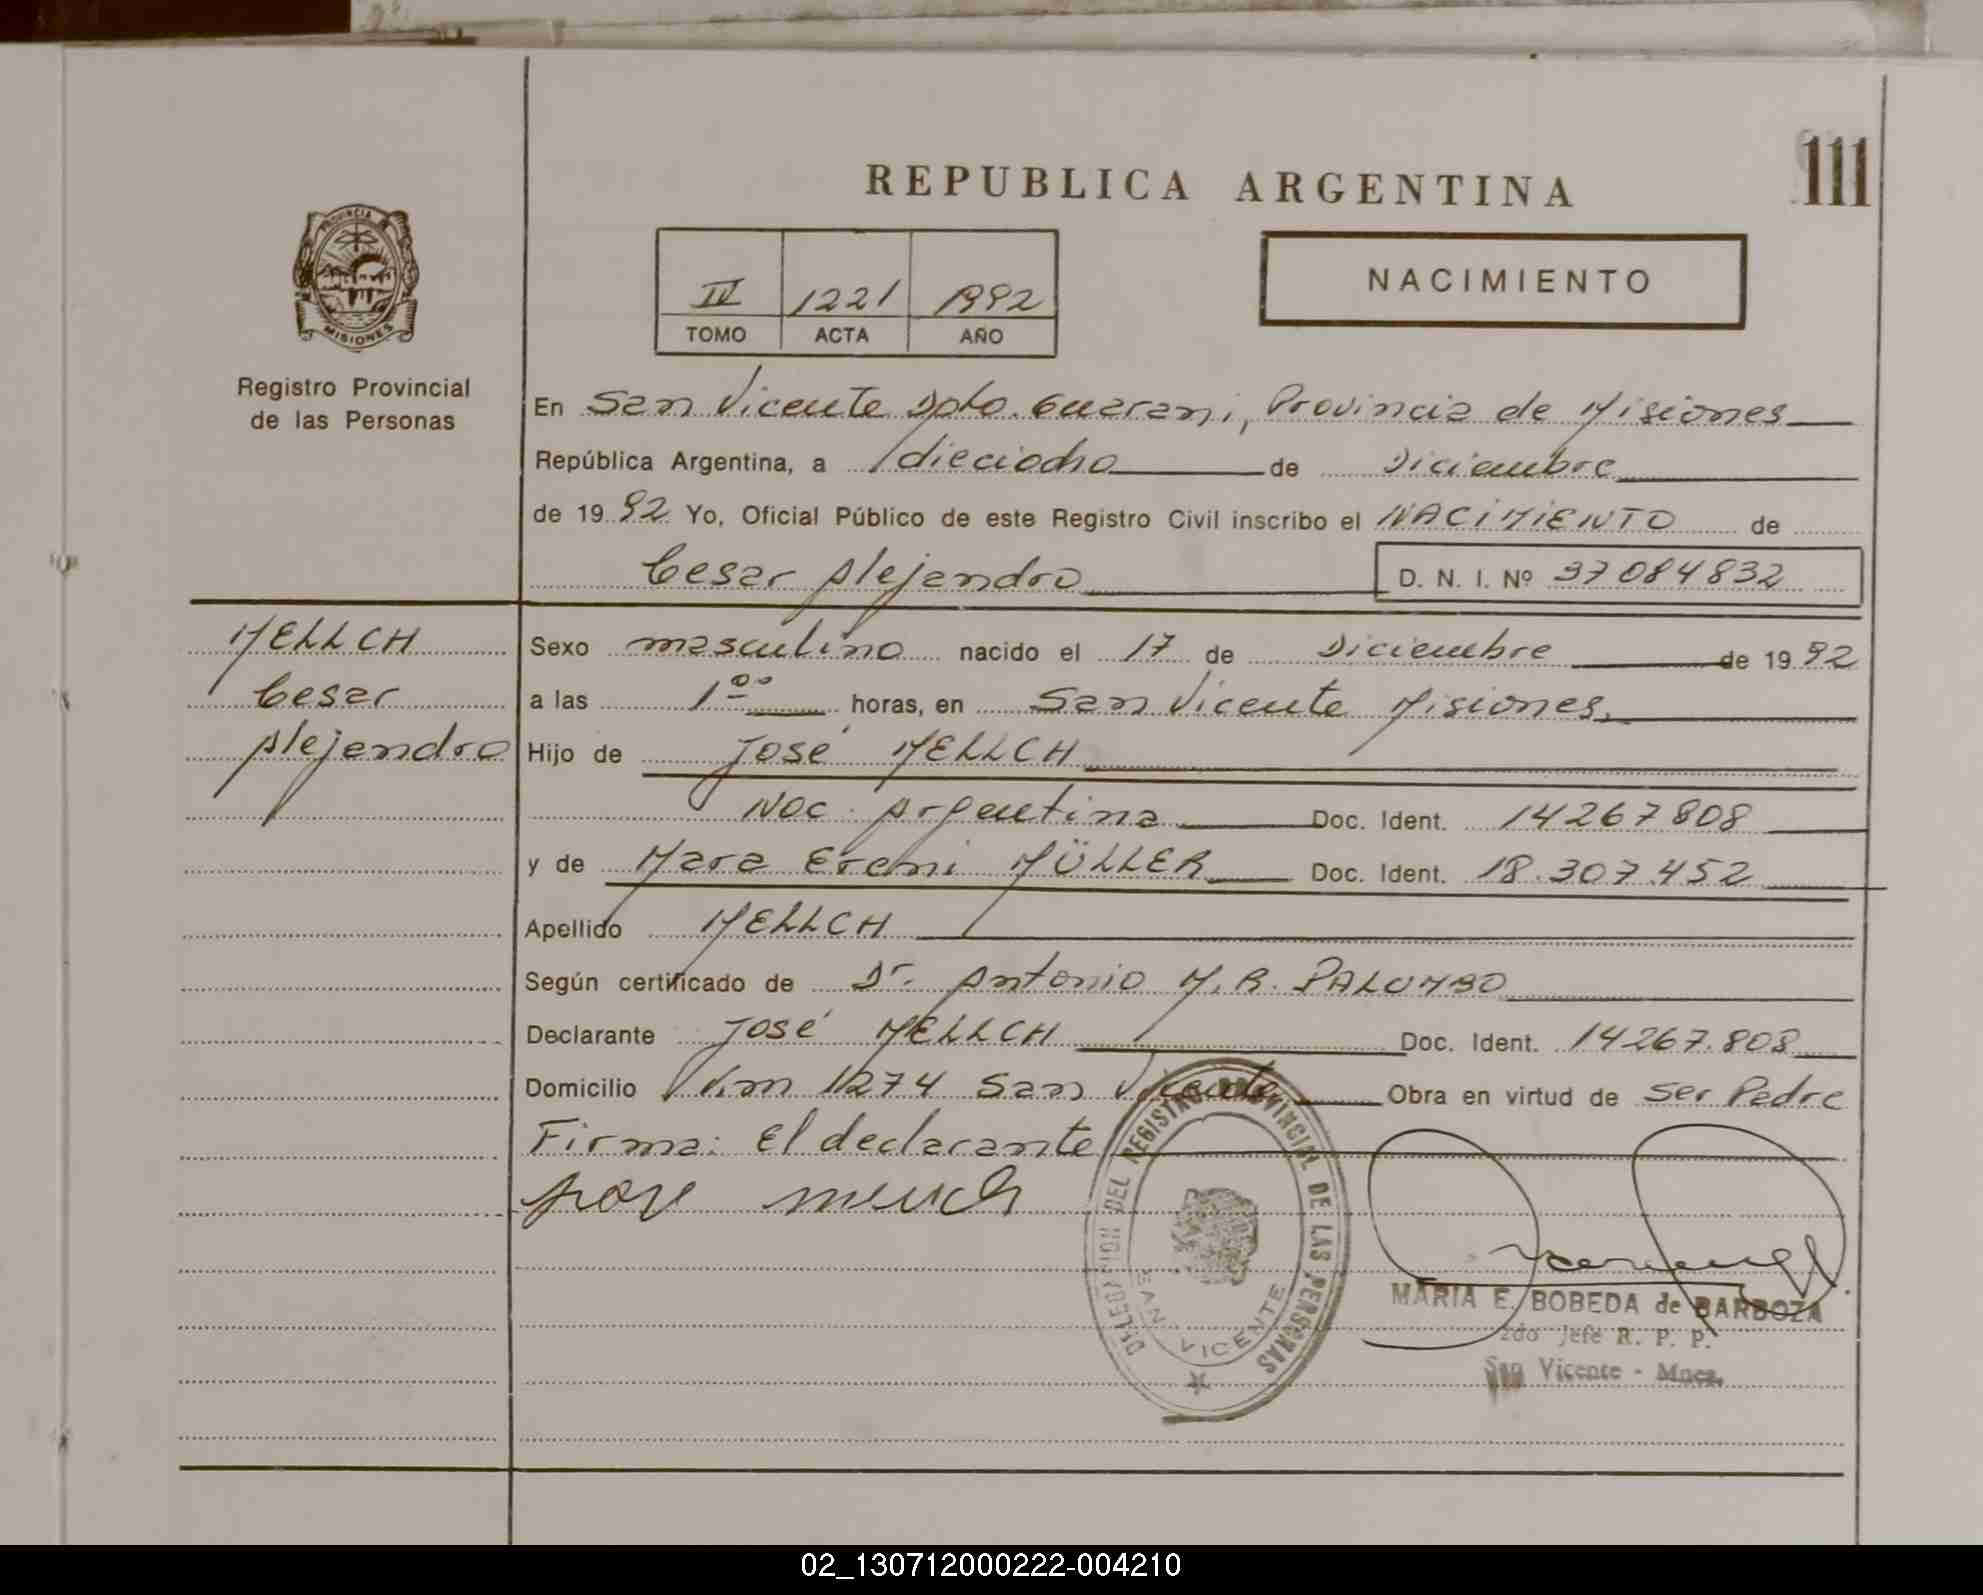 REPUBLICA ARGENTINA
111
PROVINCIA DE
MISIONES
Registro Provincial
de las Personas
IV 1221 1992
TOMO ACTA AÑO
NACIMIENTO
En San Vicente Dpto. Guarani, Provincia de Misiones
República Argentina, a dieciocho de Diciembre
de 1992 Yo, Oficial Público de este Registro Civil inscribo el NACIMIENTO de
Cesar Alejandro D. N. I. Nº 37084832
MELLCH
Cesar
Alejandro
Sexo masculino nacido el 17 de Diciembre de 1992
a las 1 oo horas, en San Vicente Misiones.
Hijo de José MELLCH
Nac. Argentina Doc. Ident. 14267808
y de Mara Ereni MÜLLER Doc. Ident. 18.307.452
Apellido MELLCH
Según certificado de Dr. Antonio M. R. PALUMBO
Declarante José MELLCH Doc. Ident. 14267.808
Domicilio Km 1274 San Vicente Obra en virtud de ser Padre
Firma: El declarante
DELEGACION DEL REGISTRO PROVINCIAL DE LAS PERSONAS
SAN VICENTE
MARIA E. BOBEDA de BARBOZA
2do Jefe R. P. P.
San Vicente - Mnes.
02_130712000222-004210